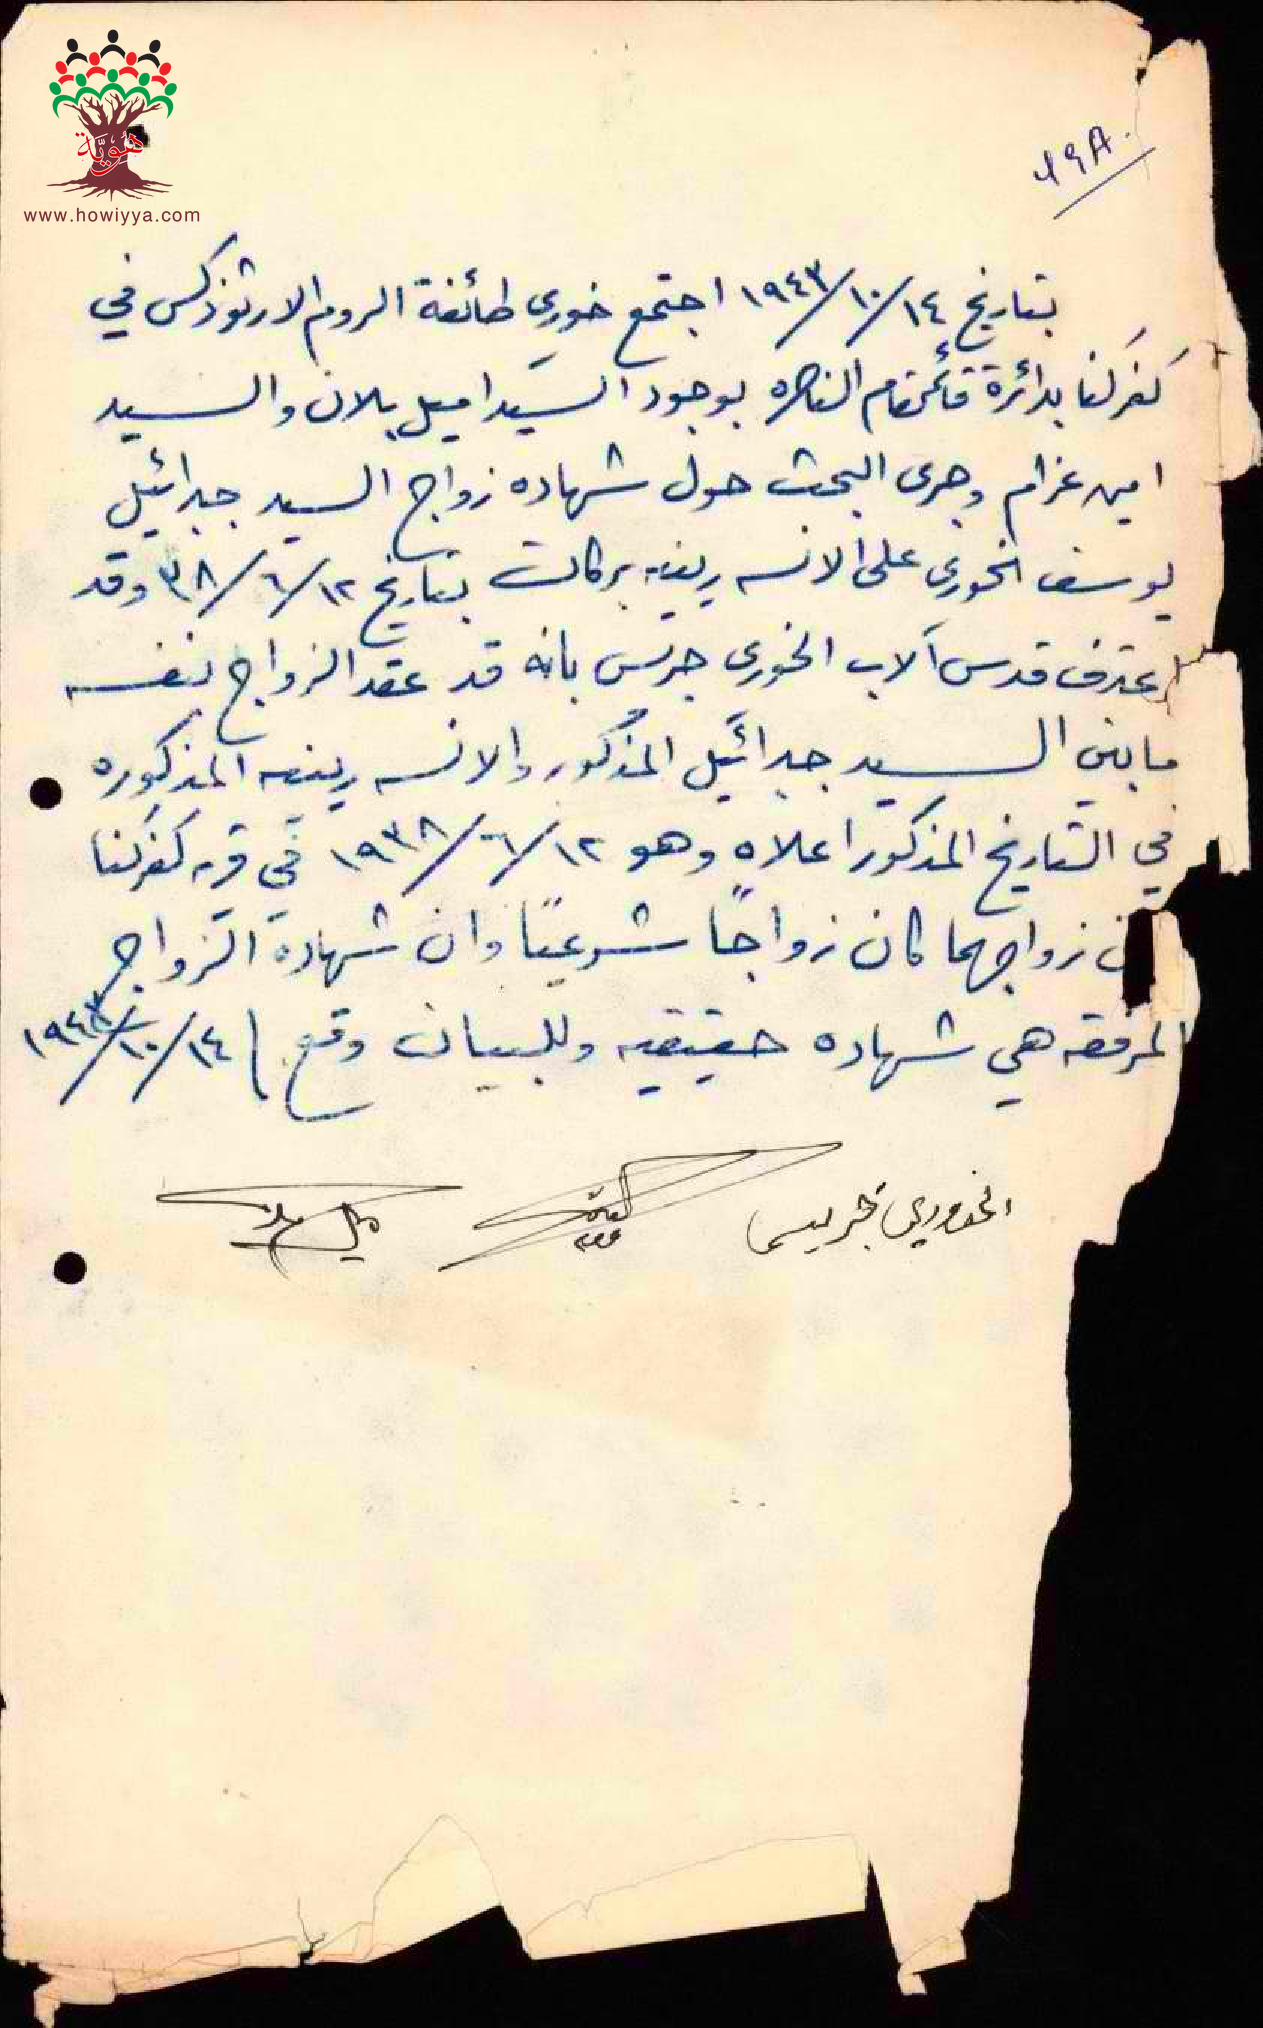 هُويَّة
www.howiyya.com
٦٩٨٠
بتاريخ ١٤/١٠/١٩٤٣ اجتمع خوري طائفة الروم الارثوذكس في
كفركنا بدائرة قائمقام الناصره بوجود السيد اميل بلان والسيد
امين عزام وجرى البحث حول شهاده زواج السيد جبرائيل
يوسف الخوري على الانسه رينيه بركات بتاريخ ١٢/٦/٣٨ وقد
اعترف قدس آلاب الخوري جريس بانه قد عقد الزواج بنفسه
مابين السيد جبرائيل المذكور والانسه رينيه المذكوره
في التاريخ المذكور اعلاه وهو ١٢/٦/١٩٣٨ في قريه كفركنا
زواجهما كان زواجًا شرعيًا وان شهادة الزواج
المرفقه هي شهاده حقيقيه وللبيان وقع ١٤/١٠/١٩٤٣
الخوري جريس